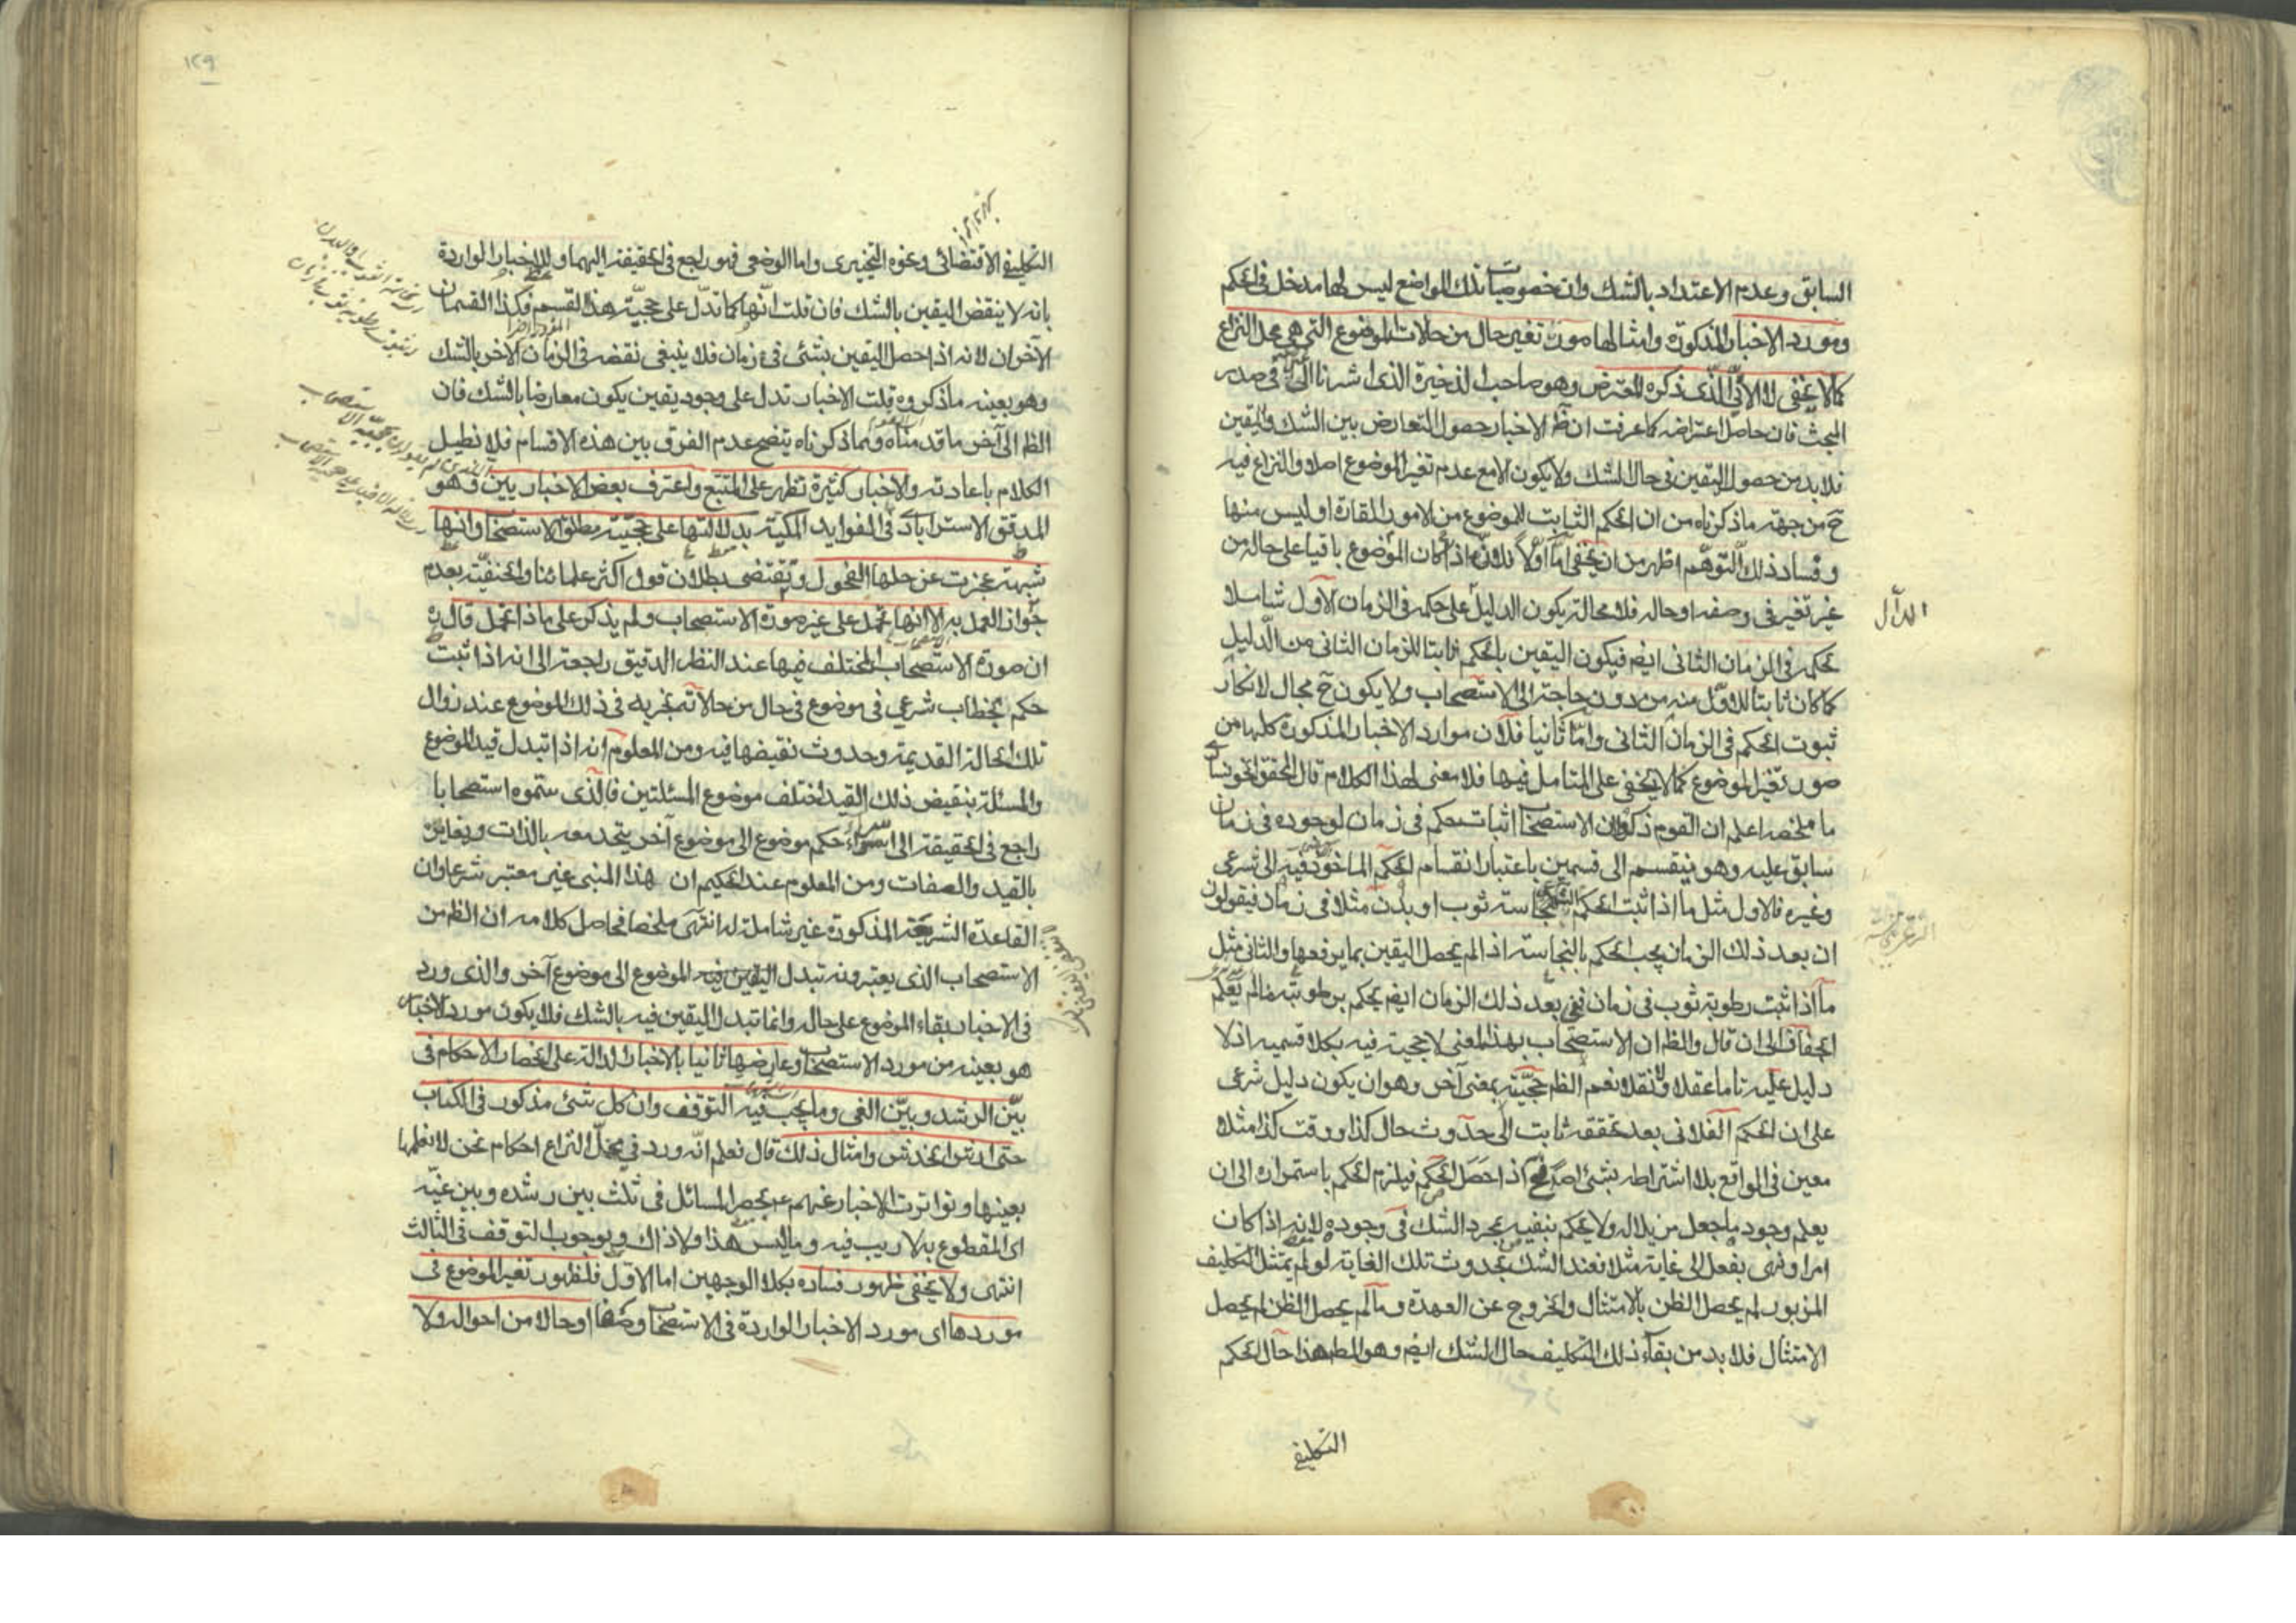 السابق وعدم الاعتداد بالشك وان خصوصيات تلك المواضع ليس لها مدخل فى الحكم
ومورد الاخبار المذكورة وامثالها صورة تغير حال من حالات الموضوع التى هى محل النزاع
كما لا يخفى الا الّذى ذكره المعترض وهو صاحب الذخيرة الذى اشرنا اليه فى صدر
المبحث فان حاصل اعتراضه كما عرفت ان ظ الاخبار حصول التعارض بين الشك واليقين
فلا بد من حصول اليقين فى حال الشك ولا يكون الا مع عدم تغير الموضوع اصلا والنزاع فيه
ح من جهة ما ذكرناه من ان الحكم الثابت للموضوع من الامور القارة او ليس منها
وفساد ذلك التوهّم اظهر من ان يخفى امّا اولاً فلانّه اذا كان الموضوع باقيا على حاله من
غير تغير فى وصفه او حاله فلا محالة يكون الدليل على حكمه فى الزمان الاول شاملا
لحكمه فى الزمان الثانى ايضا فيكون اليقين بالحكم ثابتا للزمان الثانى من الدّليل
كما كان ثابتا للاوّل منه من دون حاجة الى الاستصحاب ولا يكون ح مجال لانكار
ثبوت الحكم فى الزمان الثانى وامّا ثانيا فلان موارد الاخبار المذكورة كلها من
صور تغير الموضوع كما لا يخفى على المتامل فيها فلا معنى لهذا الكلام قال المحقق الخونسارى
ما ملخصه اعلم ان القوم ذكروا ان الاستصحاب اثبات حكم فى زمان لوجوده فى زمان
سابق عليه وهو ينقسم الى قسمين باعتبار انقسام الحكم الماخوذ فيه الى شرعى
وغيره فالاول مثل ما اذا ثبت الحكم بنجاسة ثوب او بدن مثلا فى زمان فيقولون
ان بعد ذلك الزمان يجب الحكم بالنجاسة اذا لم يحصل اليقين بما يرفعها والثانى مثل
ما اذا ثبت رطوبة ثوب فى زمان ففى بعد ذلك الزمان ايضا يحكم برطوبته ما لم يعلم
الجفاف الى ان قال والظ ان الاستصحاب بهذا المعنى لا حجية فيه بكلا قسميه اذ لا
دليل عليه تاما عقلا ولا نقلا نعم الظ حجيّته بمعنى آخر وهو ان يكون دليل شرعى
على ان الحكم الفلانى بعد تحققه ثابت الى حدوث حال كذا او وقت كذا مثلا
معين فى الواقع بلا اشتراطه بشئ اصلا فح اذا حصل الحكم فيلزم الحكم باستمراره الى ان
يعلم وجود ما جعل مزيلا له ولا يحكم بنفيه بمجرد الشك فى وجوده لانه اذا كان
امر او نهى بفعل الى غاية مثلا فعند الشك بحدوث تلك الغاية لو لم يمتثل التكليف
المزبور لم يحصل الظن بالامتثال والخروج عن العهدة وما لم يحصل الظن لم يحصل
الامتثال فلا بد من بقاء ذلك التكليف حال الشك ايضا وهو المط هذا حال الحكم
التكليفى
التكليفى الاقتضائى ونحوه التخييرى واما الوضعى فهو راجع فى الحقيقة اليهما وللاخبار الواردة
بانه لا ينقض اليقين بالشك فان قلت انّها كما تدلّ على حجيّة هذا القسم فكذا القسمان
الآخران لانه اذا حصل اليقين بشئ فى زمان فلا ينبغى نقضه فى الزمان الاخر بالشك
وهو بعينه ما ذكروه قلت الاخبار تدل على وجود يقين يكون معارضا بالشك فان
الظ الى آخر ما قدمناه وبما ذكرناه يتضح عدم الفرق بين هذه الاقسام فلا نطيل
الكلام باعادته والاخبار كثيرة تظهر على المتتبع واعترف بعض الاخباريين وهو
المدقق الاسترابادى فى الفوايد المكية بدلالتها على حجيّة مطلق الاستصحاب وانها
شبهة عجزت عن حلها الفحول وتقتضى بطلان قول اكثر علمائنا والحنفيّة بعدم
جواز العمل به الا انها تحمل على غير صورة الاستصحاب ولم يذكر على ماذا تحمل قال ره
ان صورة الاستصحاب المختلف فيها عند النظر الدقيق راجعة الى انه اذا ثبت
حكم بخطاب شرعى فى موضوع فى حال من حالاته نجريه فى ذلك الموضوع عند زوال
تلك الحالة القديمة وحدوث نقيضها فيه ومن المعلوم انه اذا تبدل قيد الموضوع
والمسئلة بنقيض ذلك القيد اختلف موضوع المسئلتين فالذى سموه استصحابا
راجع فى الحقيقة الى اسراء حكم موضوع الى موضوع آخر يتحد معه بالذات ويغايره
بالقيد والصفات ومن المعلوم عند الحكيم ان هذا المبنى غير معتبر شرعا وان
القاعدة الشريفة المذكورة غير شاملة له انتهى ملخصا فحاصل كلامه ان الظ من
الاستصحاب الذى يعتبرونه تبدل اليقين فيه الموضوع الى موضوع آخر والذى ورد
فى الاخبار بقاء الموضوع على حاله وانما تبدل اليقين فيه بالشك فلا يكون مورد الاخبار
هو بعينه من مورد الاستصحاب وعارضها ثانيا بالاخبار الدالة على انحصار الاحكام فى
بيّن الرشد وبيّن الغى وما يجب فيه التوقف وان كل شئ مذكور فى الكتاب
حتى ارش الخدش وامثال ذلك قال نعلم انّه ورد فى محلّ النزاع احكام نحن لا نعلمها
بعينها وتواترت الاخبار عنهم ع بحصر المسائل فى ثلث بين رشده وبين غيّه
اى المقطوع به لا ريب فيه وما ليس هذا ولا ذاك وبوجوب التوقف فى الثالث
انتهى ولا يخفى ظهور فساده بكلا الوجهين اما الاول فلظهور تغير الموضوع فى
موردها اى مورد الاخبار الواردة فى الاستصحاب وصفا او حالا من احواله ولا
١٢٩